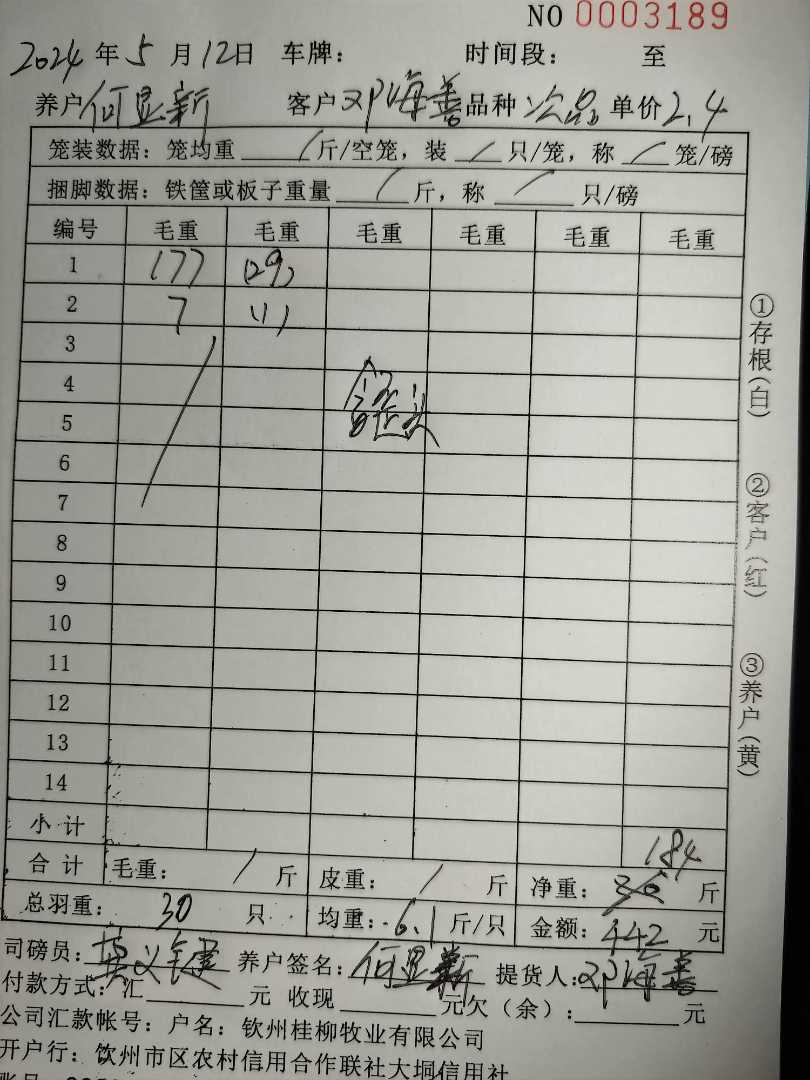 NO 0003189
2024年5月12日 车牌： 时间段： 至
养户何显新 客户邓海善品种次品单价2.4
笼装数据：笼均重 / 斤/空笼，装 / 只/笼，称 / 笼/磅
捆脚数据：铁筐或板子重量 / 斤，称 / 只/磅
编号 毛重 毛重 毛重 毛重 毛重 毛重
1 177 (29)
2 7 (1)
3
4
5
6
7
8
9
10
11
12
13
14
小计
184
合计 毛重： / 斤 皮重： / 斤 净重： 斤
总羽重： 30 只 均重：6.1斤/只 金额：442元
司磅员： 养户签名：何显新 提货人：邓海善
付款方式：汇 元 收现 元欠（余）： 元
公司汇款帐号：户名：钦州桂柳牧业有限公司
开户行：钦州市区农村信用合作联社大垌信用社
①存根（白）
②客户（红）
③养户（黄）